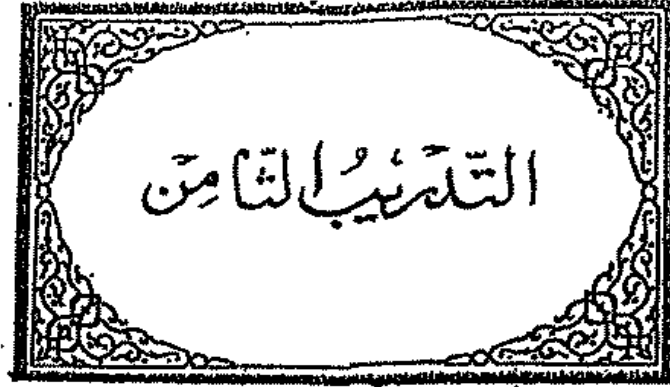 التَّدْرِيبُ الثَّامِنُ